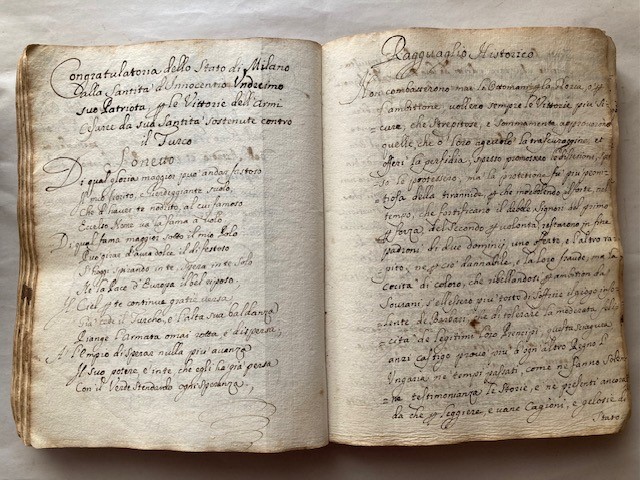 Congratulatoria dello Stato di Milano
Alla Santità d'Innocentio Undecimo
suo Patriota, per le Vittorie dell'Armi
Cesaree da sua Santità sostenute contro
il Turco
Sonetto
Di qual gloria maggior puo' andar fastoso
Il mio fiorito, e verdeggiante suolo,
Che d'haver te nodrito, al cui famoso
Eccelso Nome và la fama a volo
Di qual fama maggior sotto il mio Polo
Puo' girar d'aura dolce il
S'hoggi spirando in te, spera in te solo
la Pace d'Europa il bel riposo.
Il Ciel per te continue gratie versa
Già vede il Turcho, e l'alta sua baldanza
Piange l'Armata omai rotta e dispersa,
All'Empio di sperar nulla più avanza
Il suo potere, e inte, che egli ha già persa
Con il Verde stendardo ogni speranza.
Ragguaglio Historico
Non combatterono mai le Ottomani per la Gloria, o per
l'ambittione vollero sempre le Vittorie più si=
cure, che strepitose, e sommamente apprezzarono
quelle, che o' loro agevolò la trascuraggine, et
offerì la perfidia, spesso promossero le ribellioni, spes
so le protessero, ma la protetione fù più perni=
tiosa della tirannide, per che indebolendo il forte, nel
tempo, che fortificano il debole signori del primo
per forza, del Secondo per volontà restarono in fine
padroni di due dominij, uno offerto, e l'altro ra=
pito, ne per ciò dannabile, è la loro fraude, ma la
cecità di coloro, che ribellandosi per ambition da
Sovrani, s'ellessero più tosto di soffrire il giogo
de Barbari, che di tolerare la moderata feli=
cità de legitimi loro Principi, questa sciagura
anzi castigo provò più d'ogni altro Regno l'
Ungaria ne tempi passati, come ne fanno Solen=
ne testimonianza le Storie, e ne presenti ancora
da che per leggiere, e vane Cagioni, e gelosie di
Stato